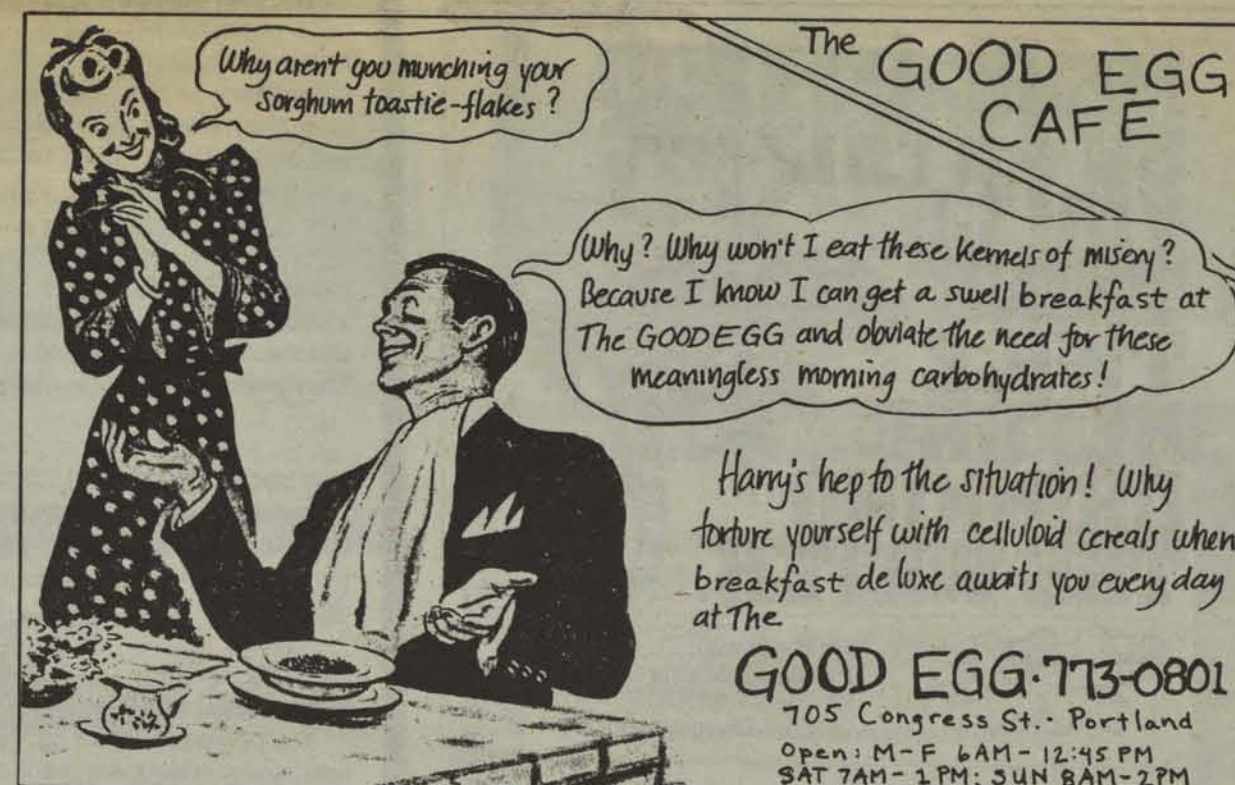 Why aren't you munching your
sorghum toastie-flakes?
The GOOD EGG
CAFE
Why? Why won't I eat these kernels of misery?
Because I know I can get a swell breakfast at
The GOOD EGG and obviate the need for these
meaningless morning carbohydrates!
Harry's hep to the situation! Why
torture yourself with celluloid cereals when
breakfast de luxe awaits you every day
at The
GOOD EGG·773-0801
705 Congress St. · Portland
Open: M-F 6AM-12:45 PM
SAT 7AM-1PM; SUN 8AM-2PM